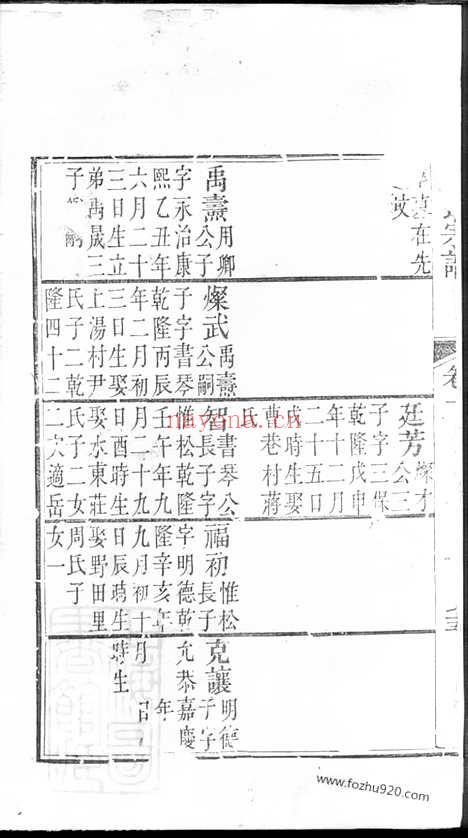 宗譜
卷一
真在先
坟
禹壽 用卿
公子
字永治康
熙乙丑年
六月二十
三日生立
弟禹晟三
子
燦武 禹壽
公嗣
子字書琴
乾隆丙辰
年二月初
三日生娶
上湯村尹
氏子二乾
隆四十二
廷芳 燦才
公三
子字三保
乾隆戊申
年十二月
二十五日
戌時生娶
曹巷村蔣
氏
智 書琴公
長子字
惟松乾隆
壬午年九
月二十九
日酉時生
娶水東莊
氏子二女
二次適岳
福初 惟松
長子
字明德乾
隆辛亥年
九月初十
日辰時生
娶野田里
周氏子
女一
克讓 明德
子字
允恭嘉慶
年
月 日
時生
nayona.cn
www.fozhu920.com